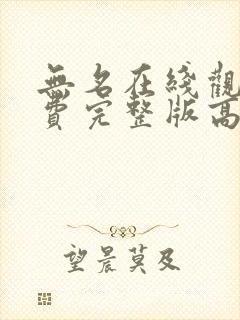 無名在綫觀
費完整版高
望晨莫及